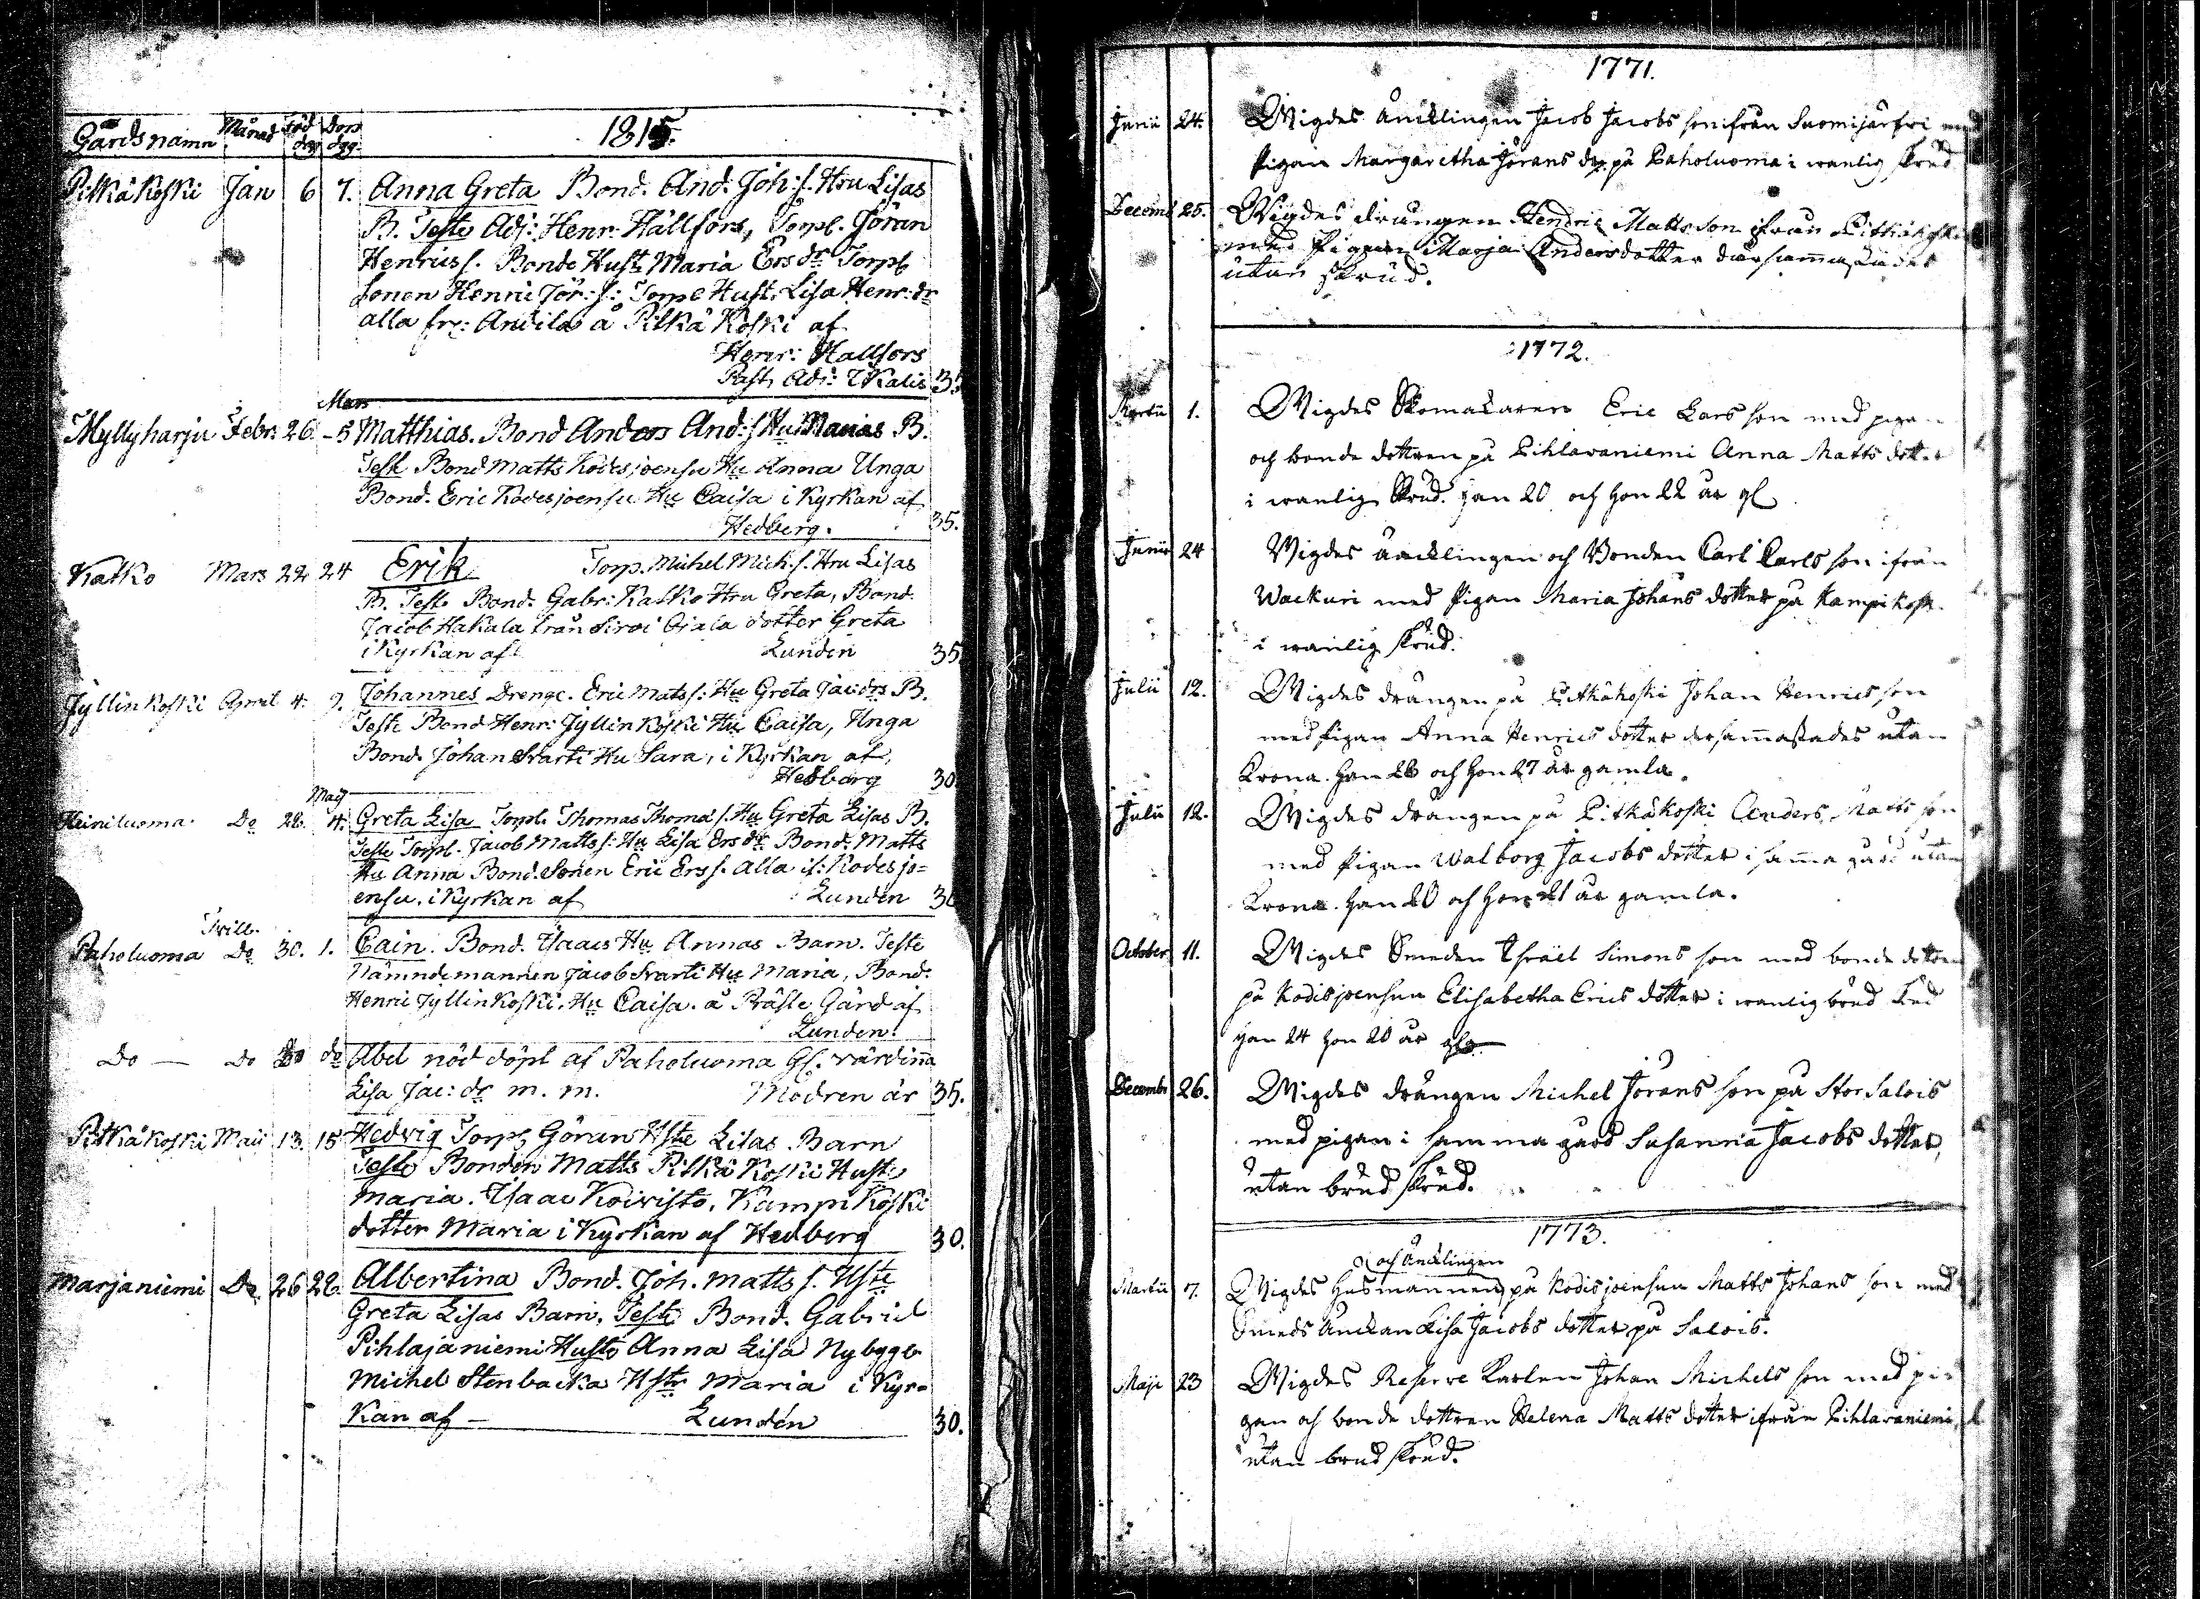 Gårds namn Månad född dag Döpt dag 1815.
Pitkäkoski Jan 6 7. Anna Greta Bond. And. Joh: s. Hru Lisas
B. Teste Adj: Henr: Hällfors, Torp. Göran
Henrics s. Bonde Hust. Maria Ers dr Torp
Sonen Henric Jör: s: Torp Hust. Lisa Henr: dr
alla frn: Andila å Pitkä Koski af
Henr: Hallfors
Past. Adj: i Ikalis 35
Mars
Myllyharju Febr: 26. - 5 Matthias. Bond Anders And: s Hu Marias B.
Teste Bond Matts Kodesjoensu Hu Anna Unga
Bond. Eric Kodesjoensu Hu Caisa i Kyrkan af
Hedberg. 35.
Katko Mars 22. 24 Erik Torp. Michel Mich. s. Hru Lisas
B. Teste Bond. Gabr: Katko Hru Greta, Bond.
Jacob Hakala från Ojala dotter Greta
i Kyrkan af Lunden 35
Jyllinkoski April 4. 9. Johannes Dreng. Eric Mats s: Hu Greta Jac: drs B.
Teste Bond Henr: Jyllinkoski Hu Caisa, Unga
Bond. Johan Svarti Hu Sara, i Kyrkan af,
Hedberg 30
Maij
Heiniluoma. Do 28. 4. Greta Lisa Torp. Thomas Thomæ s. Hu Greta Lisas B.
Teste Torp. Jacob Matts s: Hu Lisa Ers dr Bond. Matts
Hu Anna Bond. Sonen Eric Ers s. Alla if: Kodesjo=
ensu. i Kyrkan af Lunden 36
Tvill.
Paholuoma Do 30. 1. Cain. Bond. Isaacs Hu Annas Barn. Teste
Nämndemannen Jacob Svarti Hu Maria, Bond.
Henric Jyllinkoski. Hu Caisa. å Präste Gård af
Lunden.
Do — Do 30 do Abel nöd döpt af Paholuoma Gl. värdinna
Lisa Jac: dr m. m. Modren är 35.
Pitkäkoski Maii 13. 15 Hedvig Torp. Göran Hste Lisas Barn
Teste Bonden Matts Pitkä Koski Hust.
Maria. Isaac Koivisto, Kampi Koski
dotter Maria i Kyrkan af Hedberg 30.
Marjaniemi Do 26 28. Albertina Bond. Joh. Matts s. Hste
Greta Lisas Barn, Teste Bond. Gabriel
Pihlajaniemi Huste Anna Lisa Nybygg
Michel Stenbacka Hstr Maria i Kyr=
kan af — Lundén 30.
1771.
Junii 24. Wigdes Änklingen Jacob Jacobs son ifrån Suomijärfwi med
Pigan Margaretha Jörans dr. på Paholuoma i wanlig skrud
Decemb 25. Wigdes drängen Hendric Matts son ifrån Pittkäkoski
med Pigan Marja Andersdotter därsammastädes
utan skrud.
1772.
Martii 1. Wigdes Skomakaren Eric Lars son med pigan
och bonde dottren på Pihlavaniemi Anna Matts dotter
i wanlig Skrud. han 20 och hon 22 år gl
Junii 24 Wigdes änklingen och Bonden Carl Carls son ifrån
Wackuri med Pigan Maria Johans dotter på Kampikoski
i wanlig skrud.
Julii 12. Wigdes drängen på Pitkäkoski Johan Henrics son
med pigan Anna Henrics dotter dersammastädes utan
Krona. han 26 och hon 27 år gamla.
Julii 12. Wigdes drängen på Pitkäkoski Anders Matts son
med Pigan Walborg Jacobs dotter i samma gård utan
Krona. han 20 och hon 21 år gamla.
October 11. Wigdes Smeden Israël Simons son med bonde dottren
på Kodisjoensuu Elisabetha Erics dotter i wanlig brud skrud
han 24 hon 20 år gla.
Decembr 26. Wigdes drängen Michel Jörans son på Stor Salois
med pigan i samma gård Susanna Jacobs dotter,
utan brud skrud.
1773.
och Änklingen
Martii 7. Wigdes Husmannen på Kodisjoensuu Matts Johans son med
Smeds Änckan Lisa Jacobs dotter på Salois.
Maji 23 Wigdes Reserve Karlen Johan Michels son med pi=
gan och bonde dottren Helena Matts dotter ifrån Pihlavaniemi,
utan brud skrud.